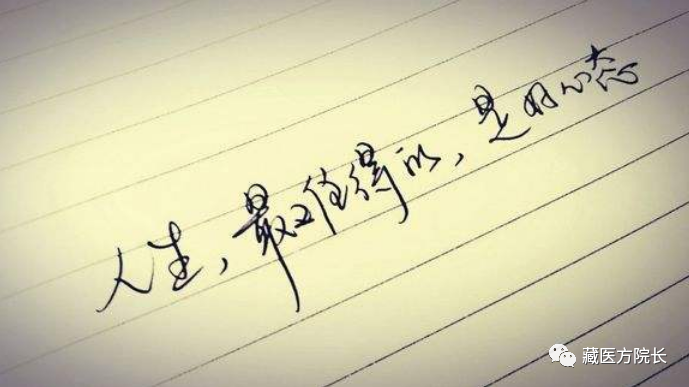 人生，最难得的，是好心态
藏医方院长